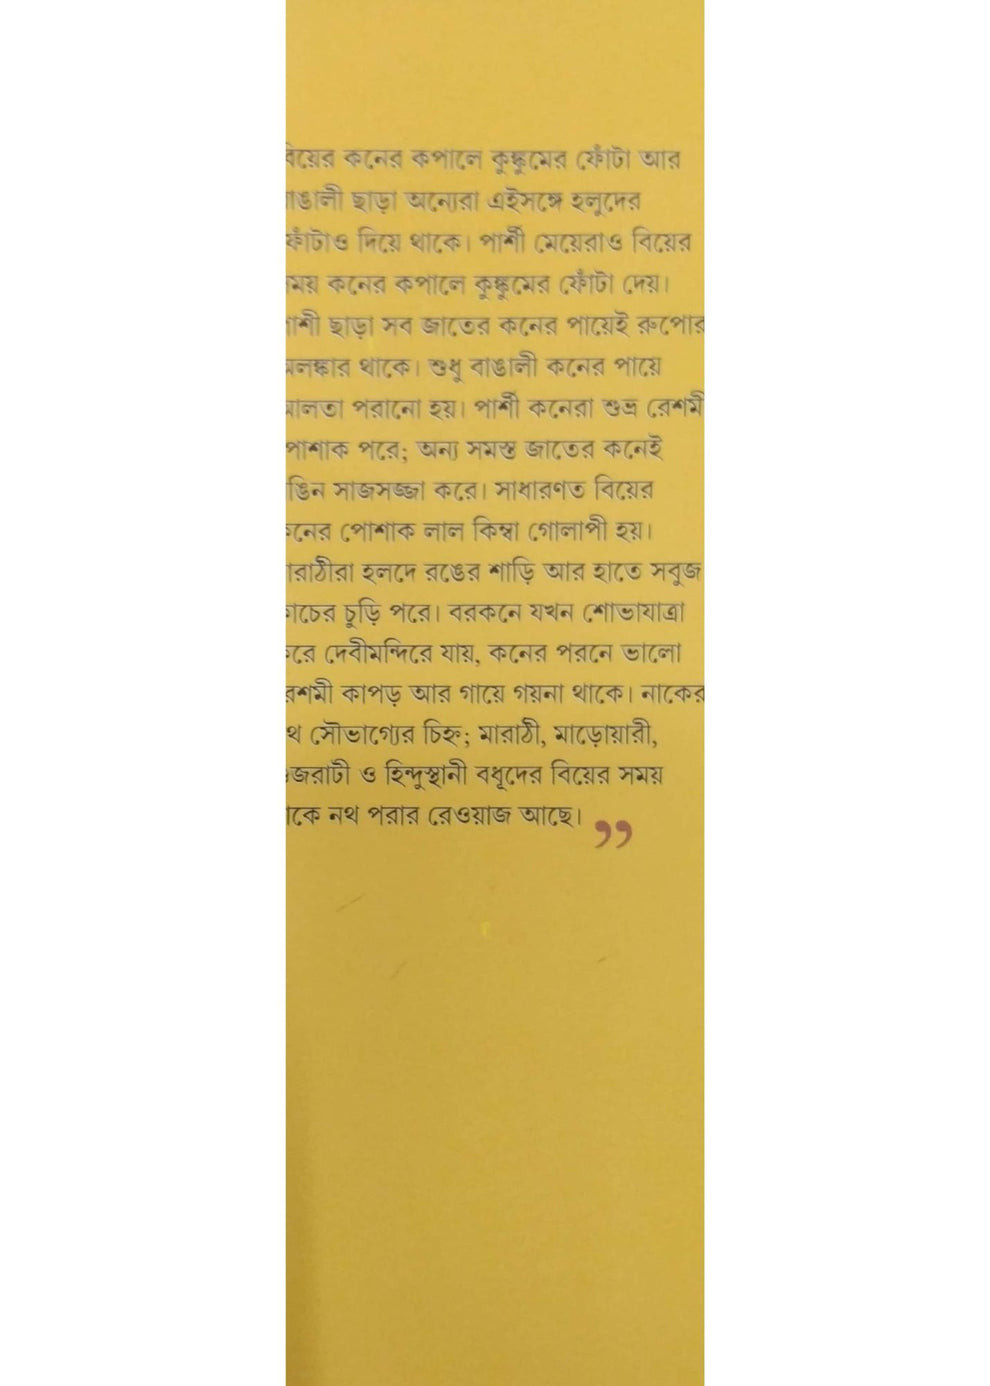 বিয়ের কনের কপালে কুঙ্কুমের ফোঁটা আর
বাঙালী ছাড়া অন্যেরা এইসঙ্গে হলুদের
ফোঁটাও দিয়ে থাকে। পার্শী মেয়েরাও বিয়ের
সময় কনের কপালে কুঙ্কুমের ফোঁটা দেয়।
পার্শী ছাড়া সব জাতের কনের পায়েই রুপোর
অলঙ্কার থাকে। শুধু বাঙালী কনের পায়ে
আলতা পরানো হয়। পার্শী কনেরা শুভ্র রেশমী
পোশাক পরে; অন্য সমস্ত জাতের কনেই
রঙিন সাজসজ্জা করে। সাধারণত বিয়ের
কনের পোশাক লাল কিম্বা গোলাপী হয়।
মারাঠীরা হলদে রঙের শাড়ি আর হাতে সবুজ
কাচের চুড়ি পরে। বরকনে যখন শোভাযাত্রা
করে দেবীমন্দিরে যায়, কনের পরনে ভালো
রেশমী কাপড় আর গায়ে গয়না থাকে। নাকের
নথ সৌভাগ্যের চিহ্ন; মারাঠী, মাড়োয়ারী,
গুজরাটী ও হিন্দুস্থানী বধূদের বিয়ের সময়
নাকে নথ পরার রেওয়াজ আছে। ”